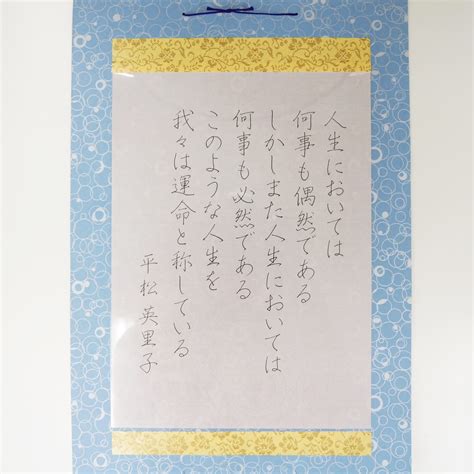 人生においては
何事も偶然である
しかしまた人生においては
何事も必然である
このような人生を
我々は運命と称している
平松英里子